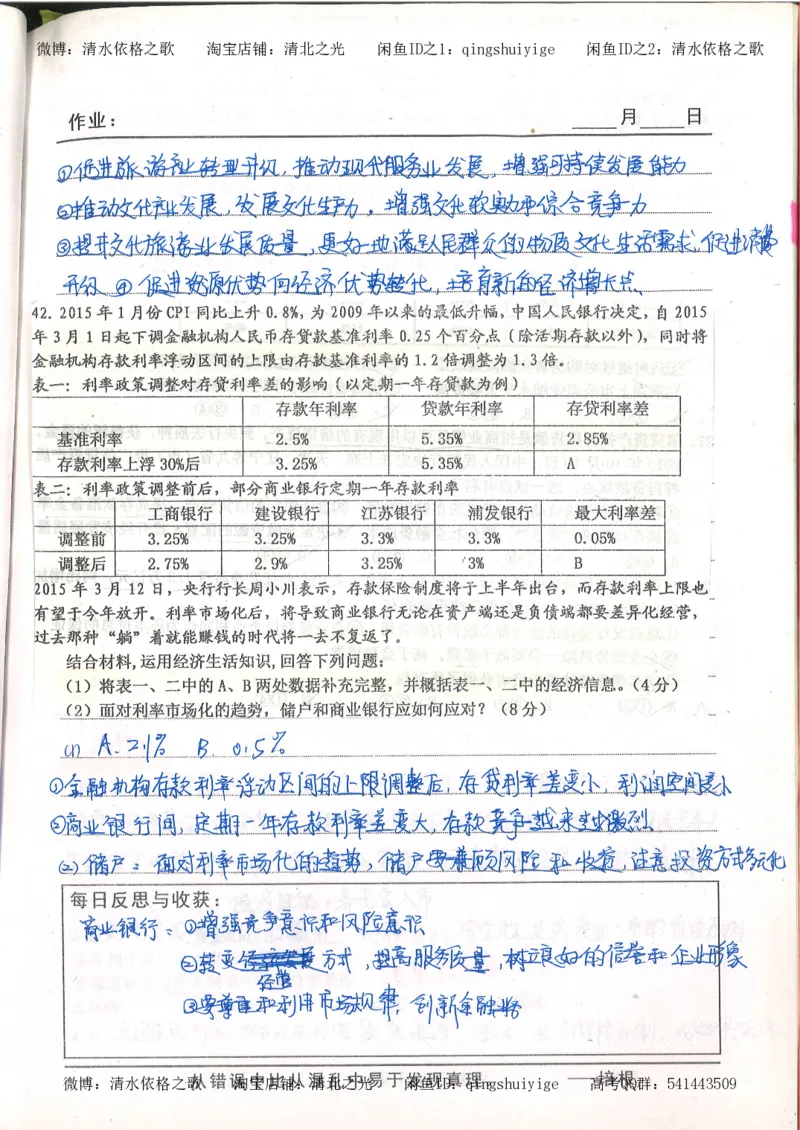 微博：清水依格之歌 淘宝店铺：清北之光 闲鱼ID之1：qingshuiyige 闲鱼ID之2：清水依格之歌
作业： 月 日
①促进旅游产业转型升级，推动现代服务业发展，增强可持续发展能力
②推动文化产业发展，发展文化生产力，增强文化软实力和综合竞争力
③提升文化旅游业发展质量，更好地满足人民群众的物质文化生活需求，促进消费
升级 ④促进资源优势向经济优势转化，培育新的经济增长点.
42. 2015年1月份CPI同比上升0.8%，为2009年以来的最低升幅，中国人民银行决定，自2015
年3月1日起下调金融机构人民币存贷款基准利率0.25个百分点（除活期存款以外），同时将
金融机构存款利率浮动区间的上限由存款基准利率的1.2倍调整为1.3倍。
表一：利率政策调整对存贷利率差的影响（以定期一年存贷款为例）
存款年利率 贷款年利率 存贷利率差
基准利率 2.5% 5.35% 2.85%
存款利率上浮30%后 3.25% 5.35% A
表二：利率政策调整前后，部分商业银行定期一年存款利率
工商银行 建设银行 江苏银行 浦发银行 最大利率差
调整前 3.25% 3.25% 3.3% 3.3% 0.05%
调整后 2.75% 2.9% 3.25% 3% B
2015年3月12日，央行行长周小川表示，存款保险制度将于上半年出台，而存款利率上限也
有望于今年放开。利率市场化后，将导致商业银行无论在资产端还是负债端都要差异化经营，
过去那种“躺”着就能赚钱的时代将一去不复返了。
结合材料，运用经济生活知识，回答下列问题：
（1）将表一、二中的A、B两处数据补充完整，并概括表一、二中的经济信息。（4分）
（2）面对利率市场化的趋势，储户和商业银行应如何应对？（8分）
(1) A. 2.1% B. 0.5%
①金融机构存款利率浮动区间的上限调整后，存贷利率差变小，利润空间变小
②商业银行间，定期一年存款利率差变大，存款竞争越来越激烈.
(2) 储户：面对利率市场化的趋势，储户要兼顾风险和收益，注意投资方式多元化
每日反思与收获：
商业银行：①增强竞争意识和风险意识
②转变经营方式，提高服务质量，树立良好的信誉和企业形象
③要尊重和利用市场规律，创新金融业务
从错误中比从混乱中易于发现真理 ——培根
微博：清水依格之歌 淘宝店铺：清北之光 闲鱼ID：qingshuiyige 高考QQ群：541443509